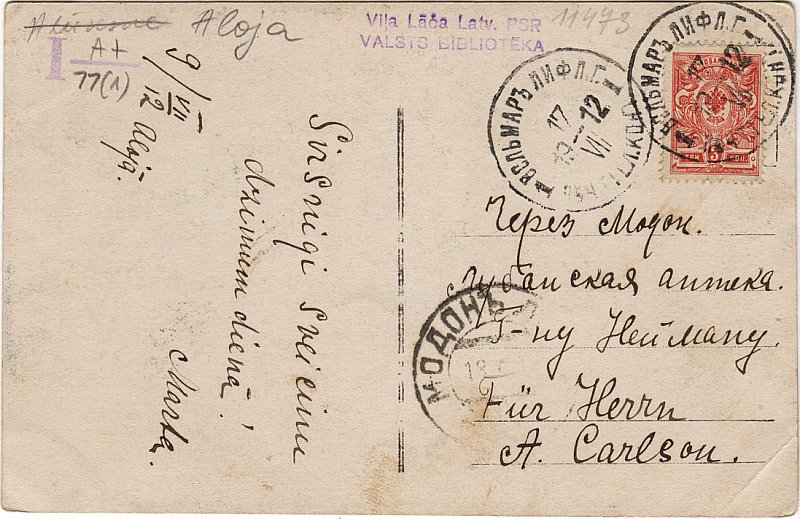 Aloja
A+
I 77(1)
Viļa Lāča Latv. PSR
VALSTS BIBLIOTĒKA
11473
9/VII 12 Alojā.
Sirsnigi sveicinu
dzimum dienā!
Marta.
ВОЛЬМАРЪ ЛИФЛ. Г.
17
VII
12
19
ВОЛЬМАРЪ ЛИФЛ. Г.
17
12
МОДОНЪ
Через Модон.
Лубанская аптека.
Г-ну Нейману.
Für Herrn
A. Carlson.